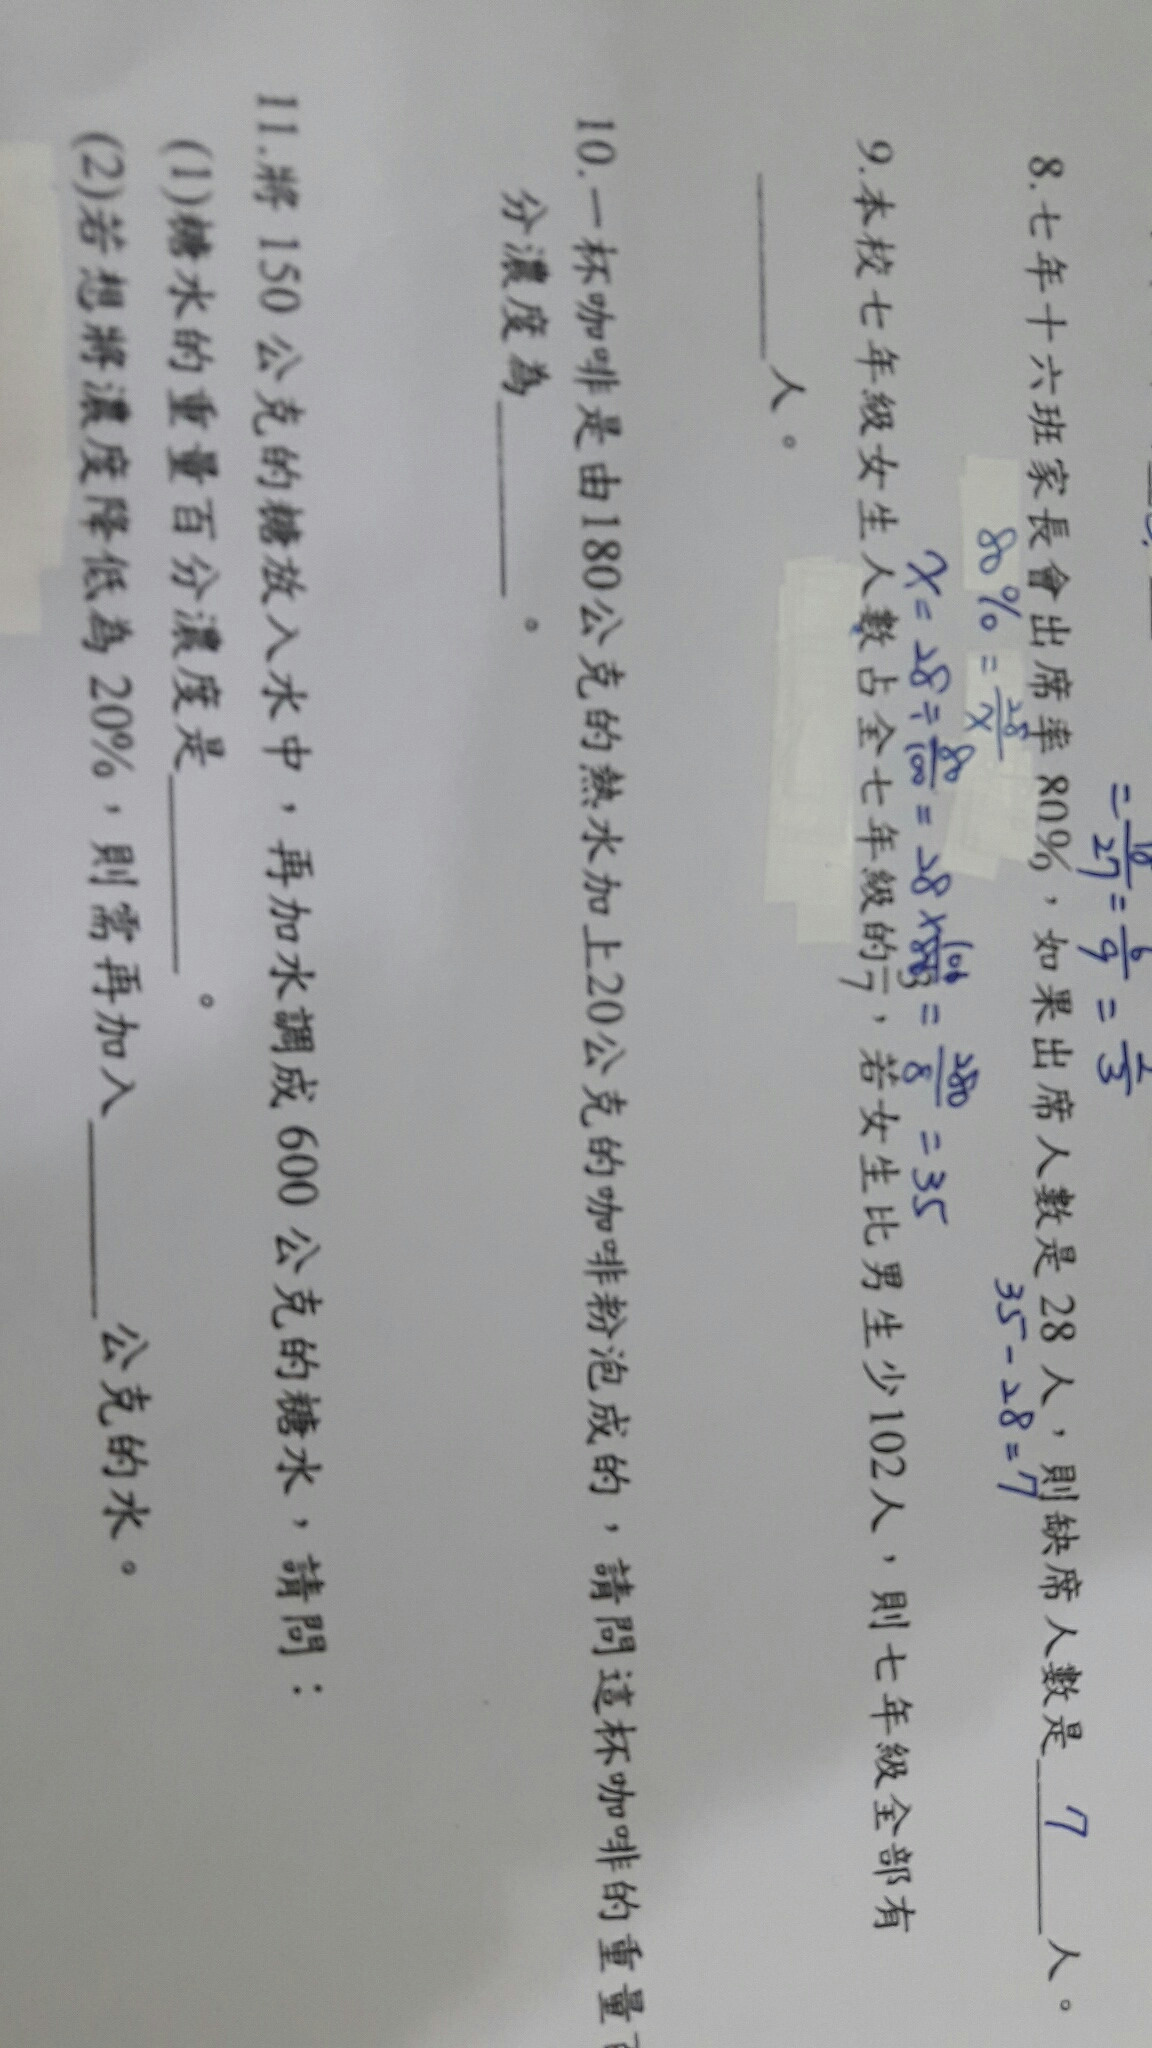 = 18/27 = 6/9 = 2/3
8.七年十六班家長會出席率 80%，如果出席人數是 28 人，則缺席人數是 7 人。
80% = 28/x
35-28=7
x = 28÷80/100 = 28×100/80 = 280/8 = 35
9.本校七年級女生人數占全七年級的3/7，若女生比男生少102人，則七年級全部有
______人。
10.一杯咖啡是由180公克的熱水加上20公克的咖啡粉泡成的，請問這杯咖啡的重量百
分濃度為______。
11.將 150 公克的糖放入水中，再加水調成 600 公克的糖水，請問：
(1)糖水的重量百分濃度是______。
(2)若想將濃度降低為 20%，則需再加入______公克的水。